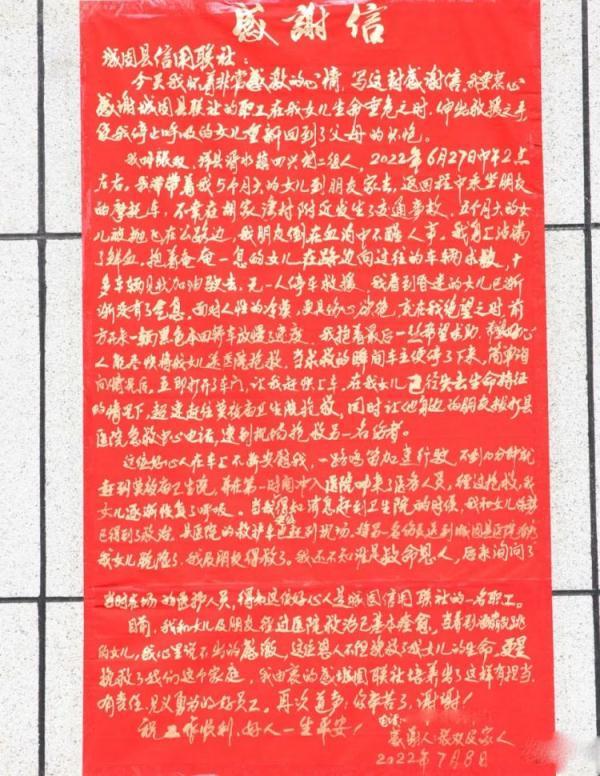 感謝信
城固县信用联社：
今天我怀着非常感激的心情，写这封感谢信，我要衷心
感谢城固县联社的职工在我女儿生命垂危之时，伸出救援之手
使我停止呼吸的女儿重新回到了父母的怀抱。
我叫张双，洋县谢水镇四兴村二组人，2022年6月27日中午2点
左右，我带带着我5个月大的女儿到朋友家去，返回程中乘坐朋友
的摩托车，不幸在胡家湾村附近发生了交通事故，五个月大的女
儿被抛飞在公路边，我朋友倒在血泊中不醒人事，我身上沾满
了鲜血，抱着奄奄一息的女儿在路边向过往的车辆求救，十
多车辆见状加油驶去，无一人停车救援，我看到昏迷的女儿已渐
渐没有了气息，面对人性的冷漠，更是伤心欲绝，京在我绝望之时，前
方品来一辆黑色本田轿车放慢了速度，我抱着最后一丝希望求助
人能尽快将我女儿送医院抢救，当求救的瞬间车主便停了下来，简单询
问情况后，立即打开了车门，让我赶快上车，在我女儿已经失去生命特征
的情况下，超速赶往莫板街卫生院抢救，同时让他身边的朋友拨打县
医院急救中心电话，速到现场抢救另一名伤者。
这位好心人在车上不断安慰我，一路鸣笛加速行驶，不到10分钟就
赶到莫板街卫生院，并在第一时间冲入医院叫来了医疗人员，经过抢救，我
女儿逐渐恢复了呼吸。当我得知消息好到卫生院的时候，我和女儿
已得到了救治，县医院的救护车也赶到现场，将另一名伤员送到城固县医院
我女儿脱险了，我及朋友得救了。我还不知谁是救命恩人，后来询问了
当时在场的医护人员，得知这位好心人是城固信用联社的一名职工。
目前，我和女儿及朋友经过医院救治已基本痊愈，查看到活蹦乱跳
的女儿，我心里说不出的感激，这位恩人不但挽救了我女儿的生命，更是
挽救了我们这个家庭，我由衷的感谢城固联社培养出了这样有担当
有责任，见义勇为的好员工。再次道声：你辛苦了，谢谢！
祝工作顺利，好人一生平安！
电话：
感谢人：张双及家人
2022年7月8日